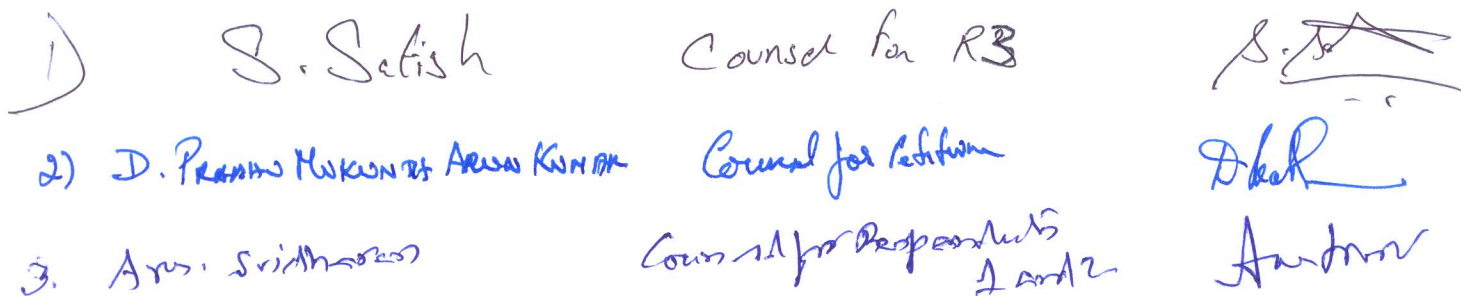 1) S. Satish Counsel for R3
2) D. PRADHAN MUKUNDA ARUN KUMAR Counsel for Petitioner
3. Arus. Sridharan Counsel for Respondents
1 and 2